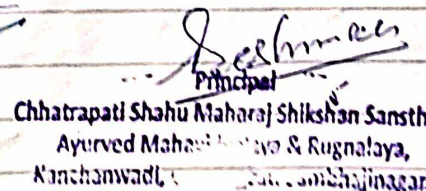 Principal
Chhatrapati Shahu Maharaj Shikshan Sansth
Ayurved Maha & Rugnalaya,
Kanchanwadi, ambhajinagar